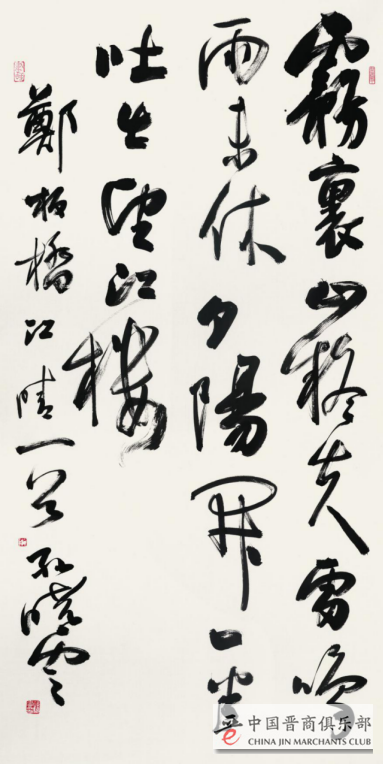 霧裹山疑失雷鳴
雨未休夕陽開一半
吐出望江樓
鄭板橋江晴一首 孫曉雲
中国晋商俱乐部
CHINA JIN MARCHANTS CLUB